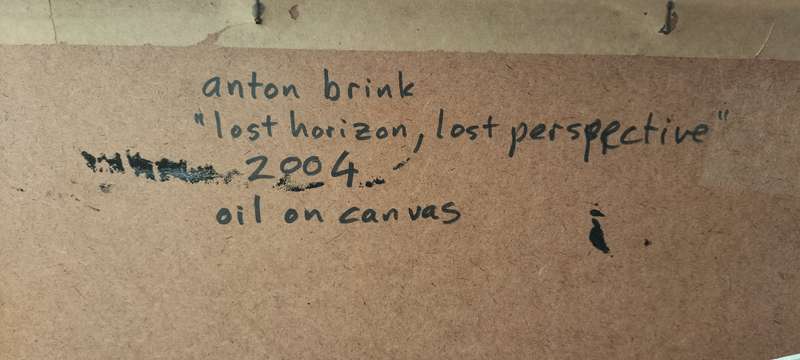 anton brink
"lost horizon, lost perspective"
2004
oil on canvas